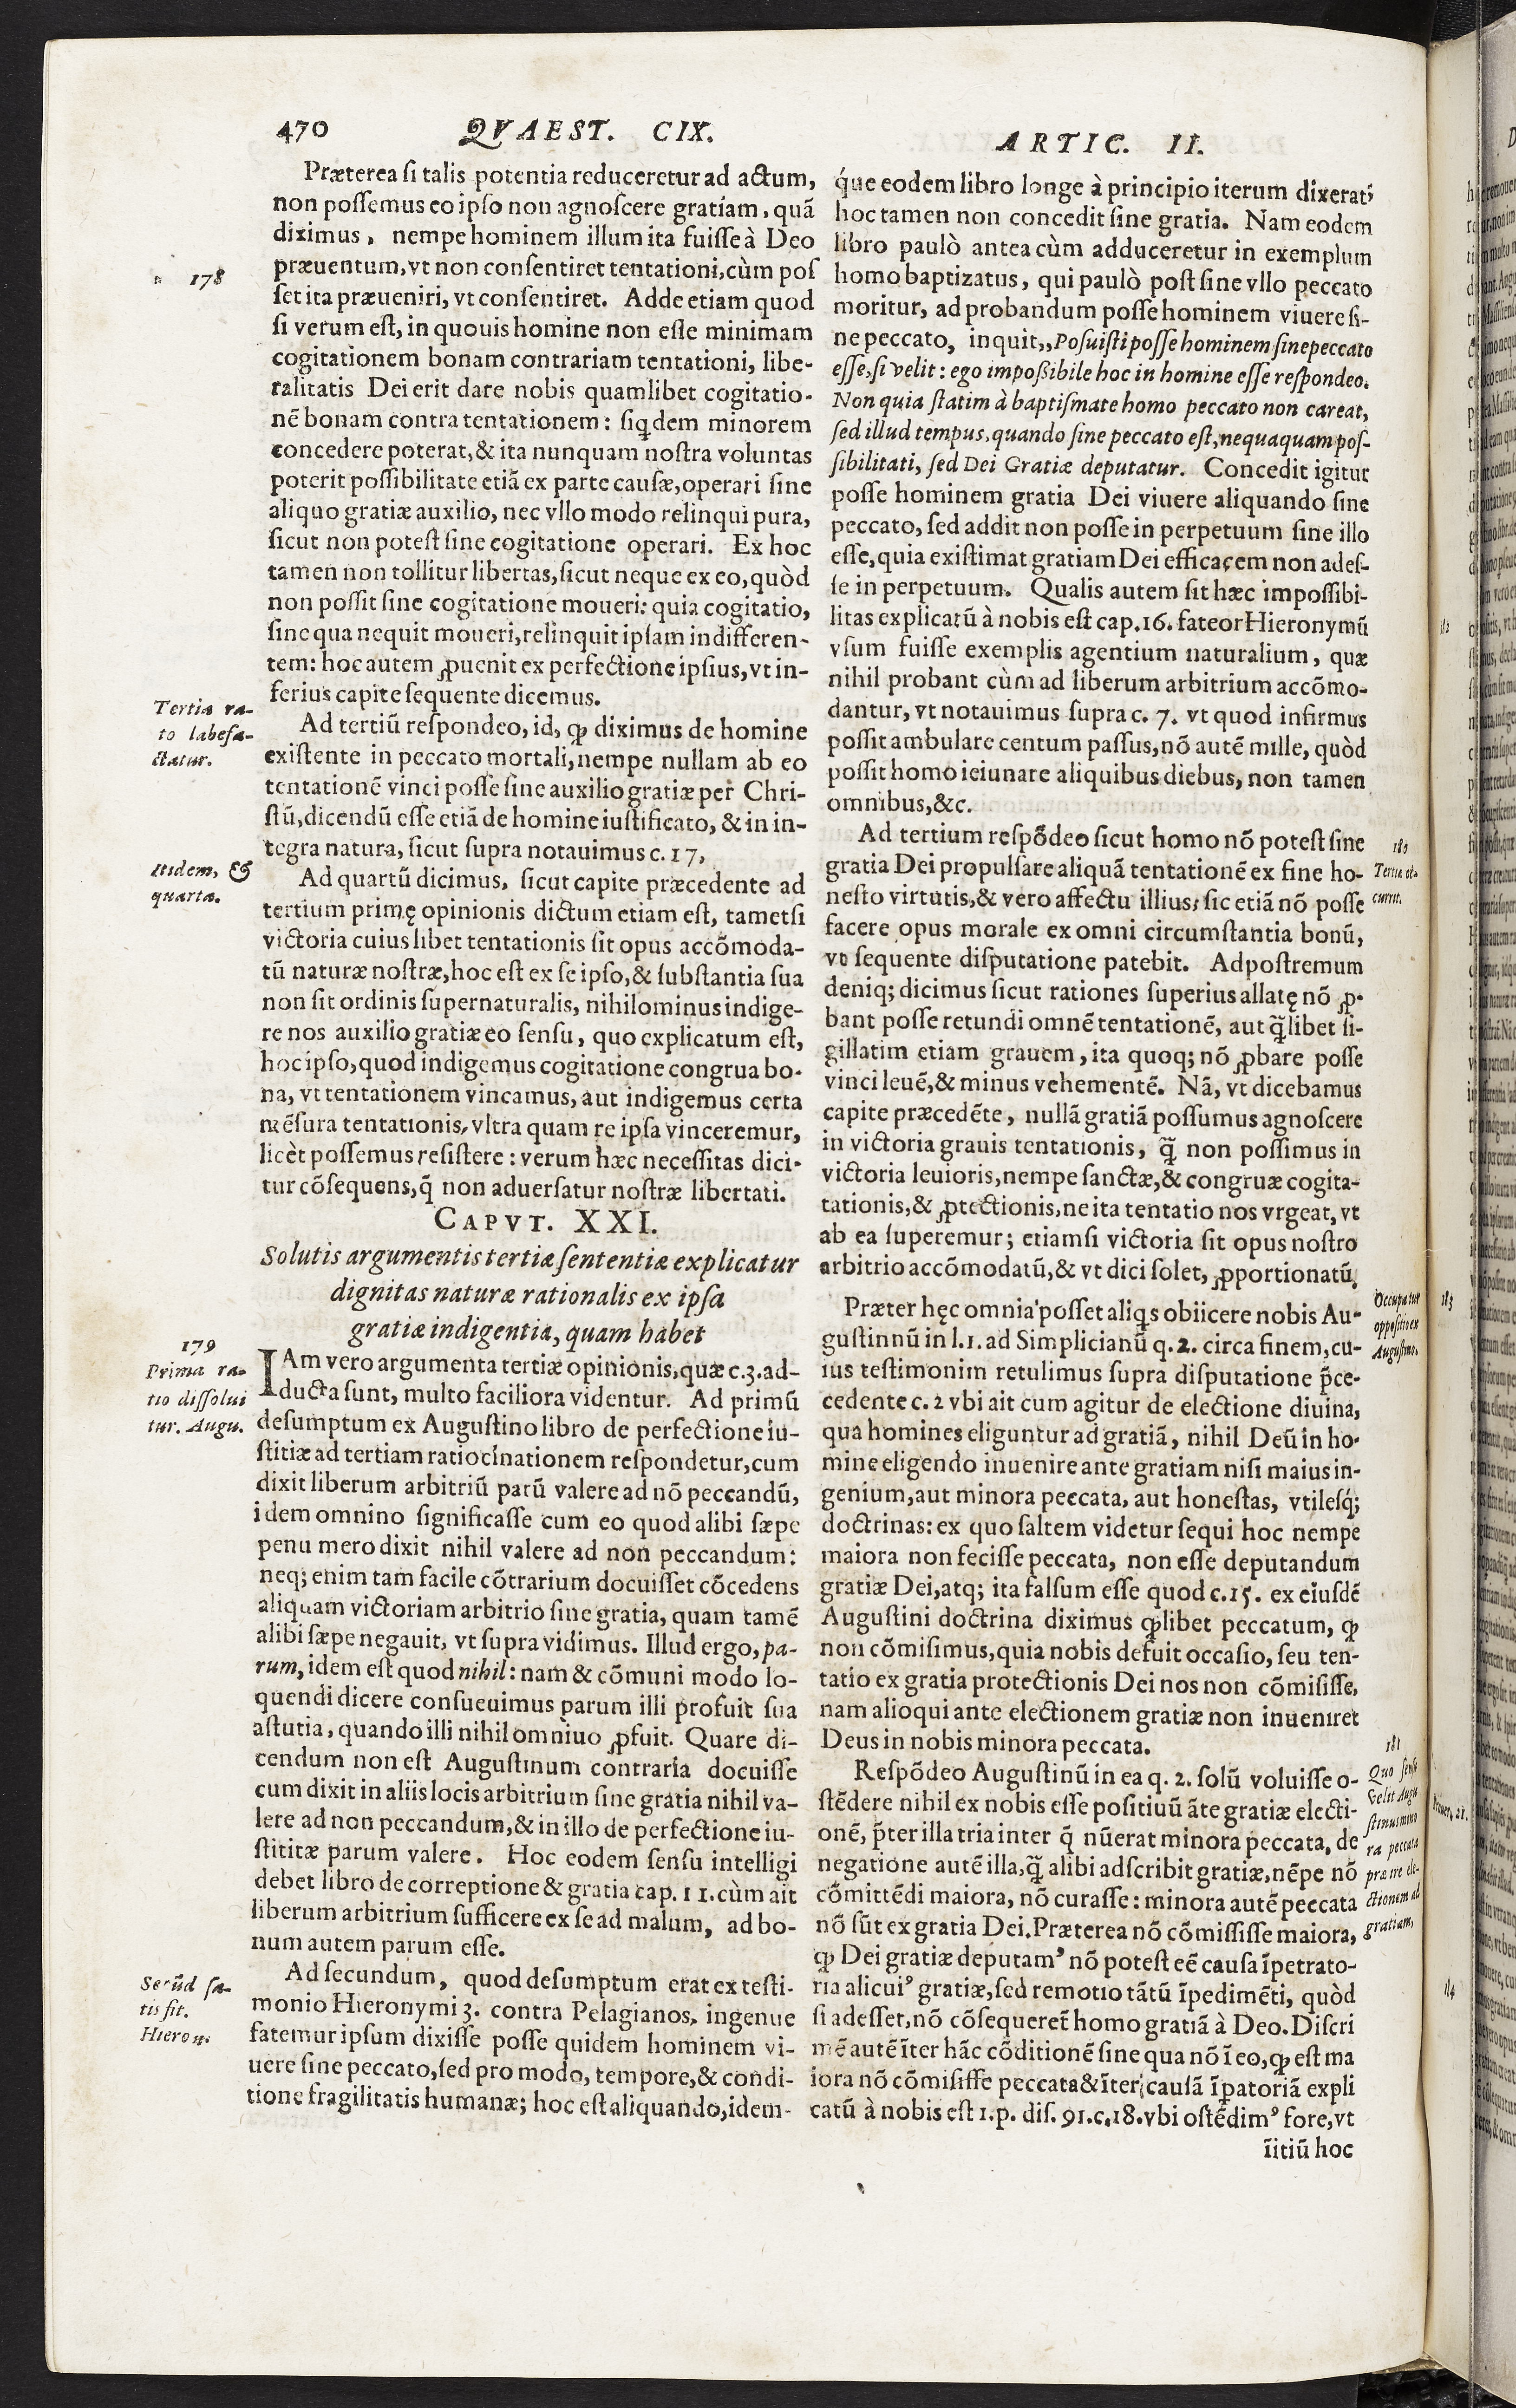 470 QVAEST. CIX.
ARTIC. II.
Præterea si talis potentia reduceretur ad actum,
non possemus eo ipso non agnoscere gratiam, quã
diximus, nempe hominem illum ita fuisse à Deo
præuentum, vt non consentiret tentationi, cùm pos
set ita præueniri, vt consentiret. Adde etiam quod
si verum est, in quouis homine non esse minimam
cogitationem bonam contrariam tentationi, libe-
ralitatis Dei erit dare nobis quamlibet cogitatio-
nẽ bonam contra tentationem: siq̃dem minorem
concedere poterat, & ita nunquam nostra voluntas
poterit possibilitate etiã ex parte causæ, operari sine
aliquo gratiæ auxilio, nec vllo modo relinqui pura,
sicut non potest sine cogitatione operari. Ex hoc
tamen non tollitur libertas, sicut neque ex eo, quòd
non possit sine cogitatione moueri: quia cogitatio,
sine qua nequit moueri, relinquit ipsam indifferen-
tem: hoc autem ꝓuenit ex perfectione ipsius, vt in-
ferius capite sequente dicemus.
Ad tertiũ respondeo, id, ꝙ diximus de homine
existente in peccato mortali, nempe nullam ab eo
tentationẽ vinci posse sine auxilio gratiæ per Chri-
stũ, dicendũ esse etiã de homine iustificato, & in in-
tegra natura, sicut supra notauimus c. 17,
Ad quartũ dicimus, sicut capite præcedente ad
tertium primę opinionis dictum etiam est, tametsi
victoria cuius libet tentationis sit opus accõmoda-
tũ naturæ nostræ, hoc est ex se ipso, & substantia sua
non sit ordinis supernaturalis, nihilominus indige-
re nos auxilio gratiæ eo sensu, quo explicatum est,
hoc ipso, quod indigemus cogitatione congrua bo-
na, vt tentationem vincamus, aut indigemus certa
mẽsura tentationis, vltra quam re ipsa vinceremur,
licèt possemus resistere: verum hæc necessitas dici-
tur cõsequens, q̃ non aduersatur nostræ libertati.
CAPVT. XXI.
Solutis argumentis tertiæ sententiæ explicatur
dignitas naturæ rationalis ex ipsa
gratiæ indigentia, quam habet
IAm vero argumenta tertiæ opinionis, quæ c. 3. ad-
ducta sunt, multo faciliora videntur. Ad primũ
desumptum ex Augustino libro de perfectione iu-
stitiæ ad tertiam ratiocinationem respondetur, cum
dixit liberum arbitriũ parũ valere ad nõ peccandũ,
idem omnino significasse cum eo quod alibi sæpe
penu mero dixit nihil valere ad non peccandum:
neq; enim tam facile cõtrarium docuisset cõcedens
aliquam victoriam arbitrio sine gratia, quam tamẽ
alibi sæpe negauit, vt supra vidimus. Illud ergo, pa-
rum, idem est quod nihil: nam & cõmuni modo lo-
quendi dicere consueuimus parum illi profuit sua
astutia, quando illi nihil omniuo ꝓfuit. Quare di-
cendum non est Augustinum contraria docuisse
cum dixit in aliis locis arbitrium sine gratia nihil va-
lere ad non peccandum, & in illo de perfectione iu-
stititæ parum valere. Hoc eodem sensu intelligi
debet libro de correptione & gratia cap. 11. cùm ait
liberum arbitrium sufficere ex se ad malum, ad bo-
num autem parum esse.
Ad secundum, quod desumptum erat ex testi-
monio Hieronymi 3. contra Pelagianos, ingenue
fatemur ipsum dixisse posse quidem hominem vi-
uere sine peccato, sed pro modo, tempore, & condi-
tione fragilitatis humanæ; hoc est aliquando, idem-
178
Tertia ra-
to labefa-
ctatur.
Itidem, &
quarta.
179
Prima ra-
tio dissolui
tur. Augu.
Secũd sa-
tis fit.
Hieron.
q́ue eodem libro longe à principio iterum dixerat;
hoc tamen non concedit sine gratia. Nam eodem
libro paulò antea cùm adduceretur in exemplum
homo baptizatus, qui paulò post sine vllo peccato
moritur, ad probandum posse hominem viuere si-
ne peccato, inquit,, Posuisti posse hominem sine peccato
esse, si velit: ego impoßibile hoc in homine esse respondeo.
Non quia statim à baptismate homo peccato non careat,
sed illud tempus, quando sine peccato est, nequaquam pos-
sibilitati, sed Dei Gratiæ deputatur. Concedit igitur
posse hominem gratia Dei viuere aliquando sine
peccato, sed addit non posse in perpetuum sine illo
esse, quia existimat gratiam Dei efficacem non ades-
se in perpetuum. Qualis autem sit hæc impossibi-
litas explicatũ à nobis est cap. 16. fateor Hieronymũ
vsum fuisse exemplis agentium naturalium, quæ
nihil probant cùm ad liberum arbitrium accõmo-
dantur, vt notauimus supra c. 7. vt quod infirmus
possit ambulare centum passus, nõ autẽ mille, quòd
possit homo ieiunare aliquibus diebus, non tamen
omnibus, &c.
Ad tertium respõdeo sicut homo nõ potest sine
gratia Dei propulsare aliquã tentationẽ ex fine ho-
nesto virtutis, & vero affectu illius; sic etiã nõ posse
facere opus morale ex omni circumstantia bonũ,
vt sequente disputatione patebit. Ad postremum
deniq; dicimus sicut rationes superius allatę nõ ꝓ-
bant posse retundi omnẽ tentationẽ, aut q̃libet si-
gillatim etiam grauem, ita quoq; nõ ꝓbare posse
vinci leuẽ, & minus vehementẽ. Nã, vt dicebamus
capite præcedẽte, nullã gratiã possumus agnoscere
in victoria grauis tentationis, q̃ non possimus in
victoria leuioris, nempe sanctæ, & congruæ cogita-
tationis, & ꝓtectionis, ne ita tentatio nos vrgeat, vt
ab ea superemur; etiamsi victoria sit opus nostro
arbitrio accõmodatũ, & vt dici solet, ꝓportionatũ.
Præter hęc omnia posset aliq̃s obiicere nobis Au-
gustinnũ in l. 1. ad Simplicianũ q. 2. circa finem, cu-
ius testimonim retulimus supra disputatione p̃ce-
cedente c. 2 vbi ait cum agitur de electione diuina,
qua homines eliguntur ad gratiã, nihil Deũ in ho-
mine eligendo inuenire ante gratiam nisi maius in-
genium, aut minora peccata, aut honestas, vtilesq́;
doctrinas: ex quo saltem videtur sequi hoc nempe
maiora non fecisse peccata, non esse deputandum
gratiæ Dei, atq; ita falsum esse quod c. 15. ex eiusdẽ
Augustini doctrina diximus ꝙlibet peccatum, ꝙ
non cõmisimus, quia nobis defuit occasio, seu ten-
tatio ex gratia protectionis Dei nos non cõmisisse,
nam alioqui ante electionem gratiæ non inueniret
Deus in nobis minora peccata.
Respõdeo Augustinũ in ea q. 2. solũ voluisse o-
stẽdere nihil ex nobis esse positiuũ ãte gratiæ electi-
onẽ, p̃ter illa tria inter q̃ nũerat minora peccata, de
negatione autẽ illa, q̃ alibi adscribit gratiæ, nẽpe nõ
cõmittẽdi maiora, nõ curasse: minora autẽ peccata
nõ sũt ex gratia Dei. Præterea nõ cõmississe maiora,
ꝙ Dei gratiæ deputamꝰ nõ potest eẽ causa ĩpetrato-
ria alicuiꝰ gratiæ, sed remotio tãtũ ĩpedimẽti, quòd
si adesset, nõ cõsequeret̃ homo gratiã à Deo. Discri
mẽ autẽ ĩter hãc cõditionẽ sine qua nõ ĩ eo, ꝙ est ma
iora nõ cõmisisse peccata & ĩter causã ĩpatoriã expli
catũ à nobis est 1. p. dis. 91. c. 18. vbi ostẽdimꝰ fore, vt
ĩitiũ hoc
180
Tertia oc-
currit.
Occupatur
oppositio ex
Augustino.
181
Quo sensu
velit Augu
stinus mino
ra peccata
præire ele-
ctionem ad
gratiam,